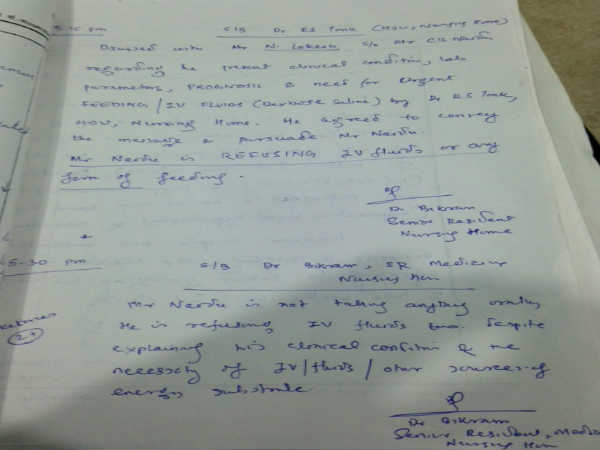 5.15 pm S/B Dr RS Tonk (HOU, Nursing Home)
Discussed with Mr N. Lokesh S/o Mr CB Naidu
regarding the present clinical condition, lab
parameters, PROGNOSIS & need for Urgent
FEEDING / IV FLUIDS (Dextrose Saline) by Dr RS Tonk,
HOU, Nursing Home. He agreed to convey
the message & pursuade Mr Naidu.
Mr Naidu is REFUSING IV fluids or any
form of feeding.
Dr Bikram
Senior Resident
Nursing Home
5-30 pm
S/B Dr Bikram, SR Medicine
Nursing Home
Mr Naidu is not taking anything orally
He is refusing IV fluids too despite
explaining his clinical condition & the
necessity of IV/fluids/other sources of
energy substrate
Dr Bikram
Senior Resident, Medicine
Nursing Home